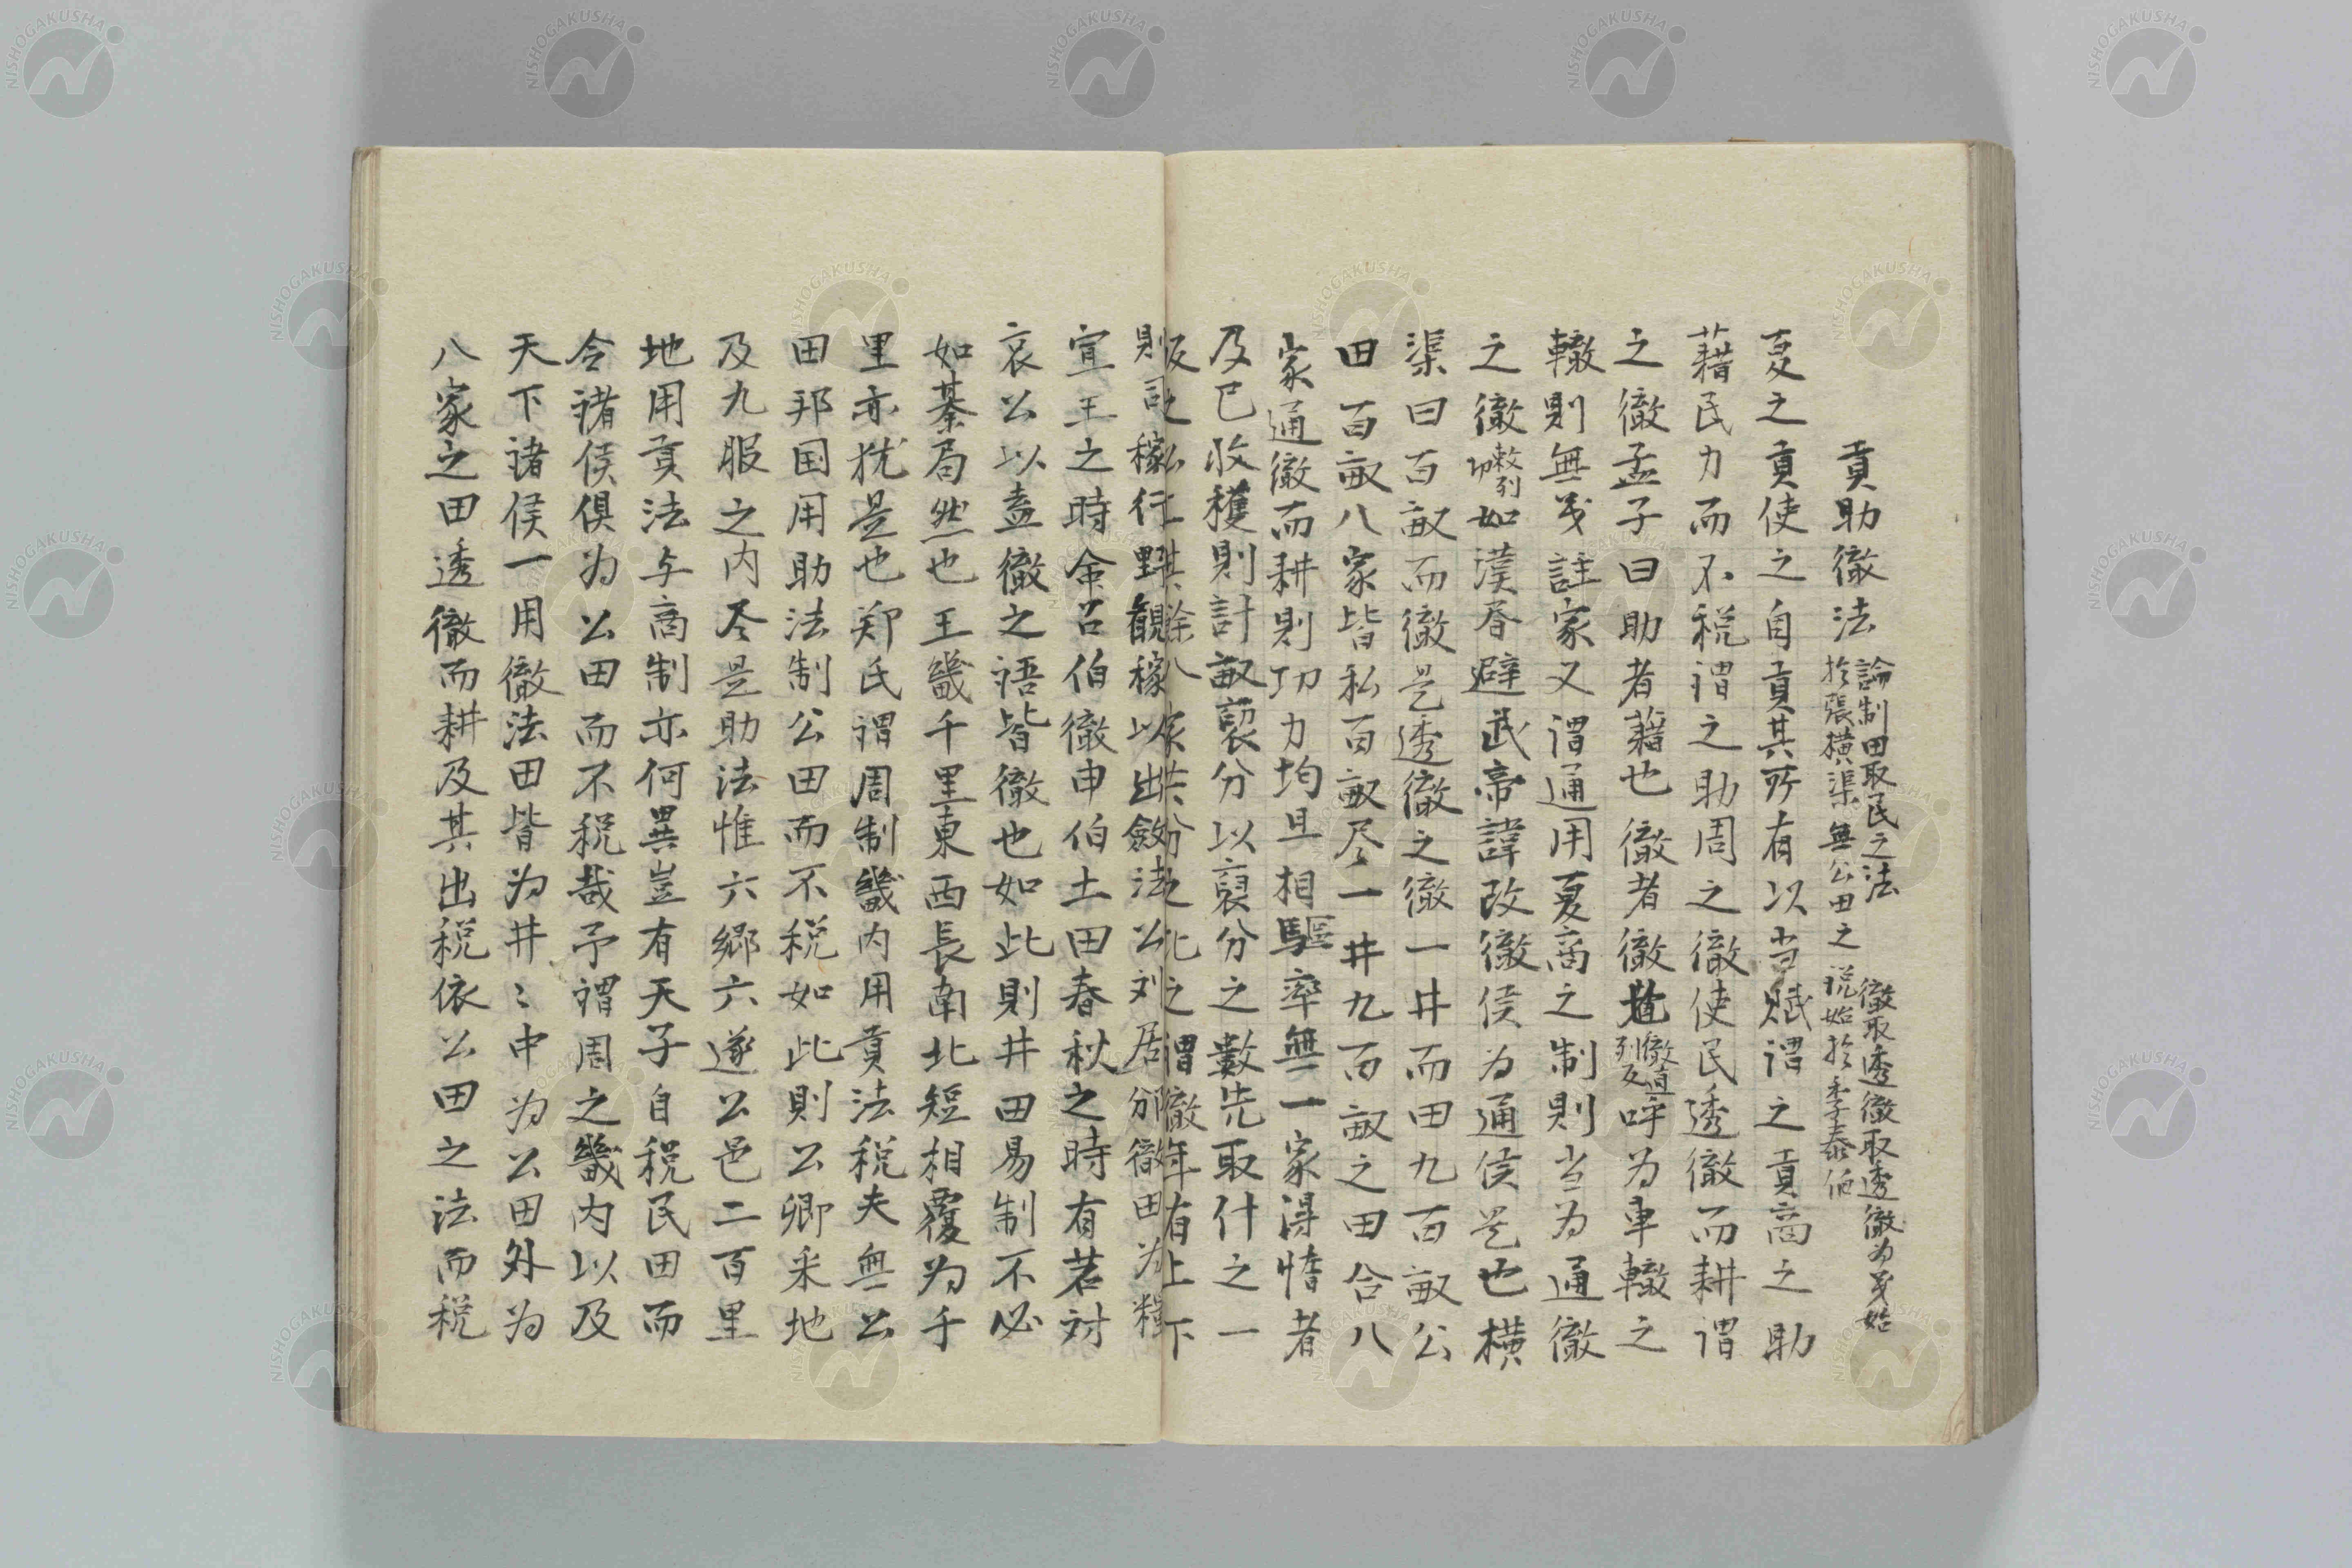 貢助徹法 論制田取民之法 徹取透徹取透徹為義始
於張横渠 無公田之説始於季泰伯
夏之貢使之自貢其所有以当賦谓之貢商之助
藉民力而不税谓之助周之徹使民透徹而耕谓
之徹孟子曰助者藉也徹者徹 徹直列反 呼为車轍之
轍則無义註家又谓通用夏商之制則当为通徹
之徹 敕列切 如漢唇避武帝諱改徹侯为通侯是也横
渠曰百畝而徹是透徹之徹一井而田九百畝公
田百畝八家皆私百畝尽一井九百畝之田合八
家通徹而耕則功力均且相驅率無一家得惰者
及已收穫則計畝裒分以裒分之數先取什之一
則司稼行野觀稼以出斂法公刘居豳徹田为糧
宣王之時命召伯徹申伯土田春秋之時有若対
哀公以盍徹之语皆徹也如此則井田易制不必
如棊局然也王畿千里東西長南北短相覆为千
里亦犹是也郑氏谓周制畿内用貢法税夫無公
田邦国用助法制公田而不税如此則公卿采地
及九服之内尽是助法惟六鄉六遂公邑二百里
地用貢法与商制亦何異豈有天子自税民田而
令诸侯俱为公田而不税哉予谓周之畿内以及
天下诸侯一用徹法田皆为井〻中为公田外为
八家之田透徹而耕及其出税依公田之法而税